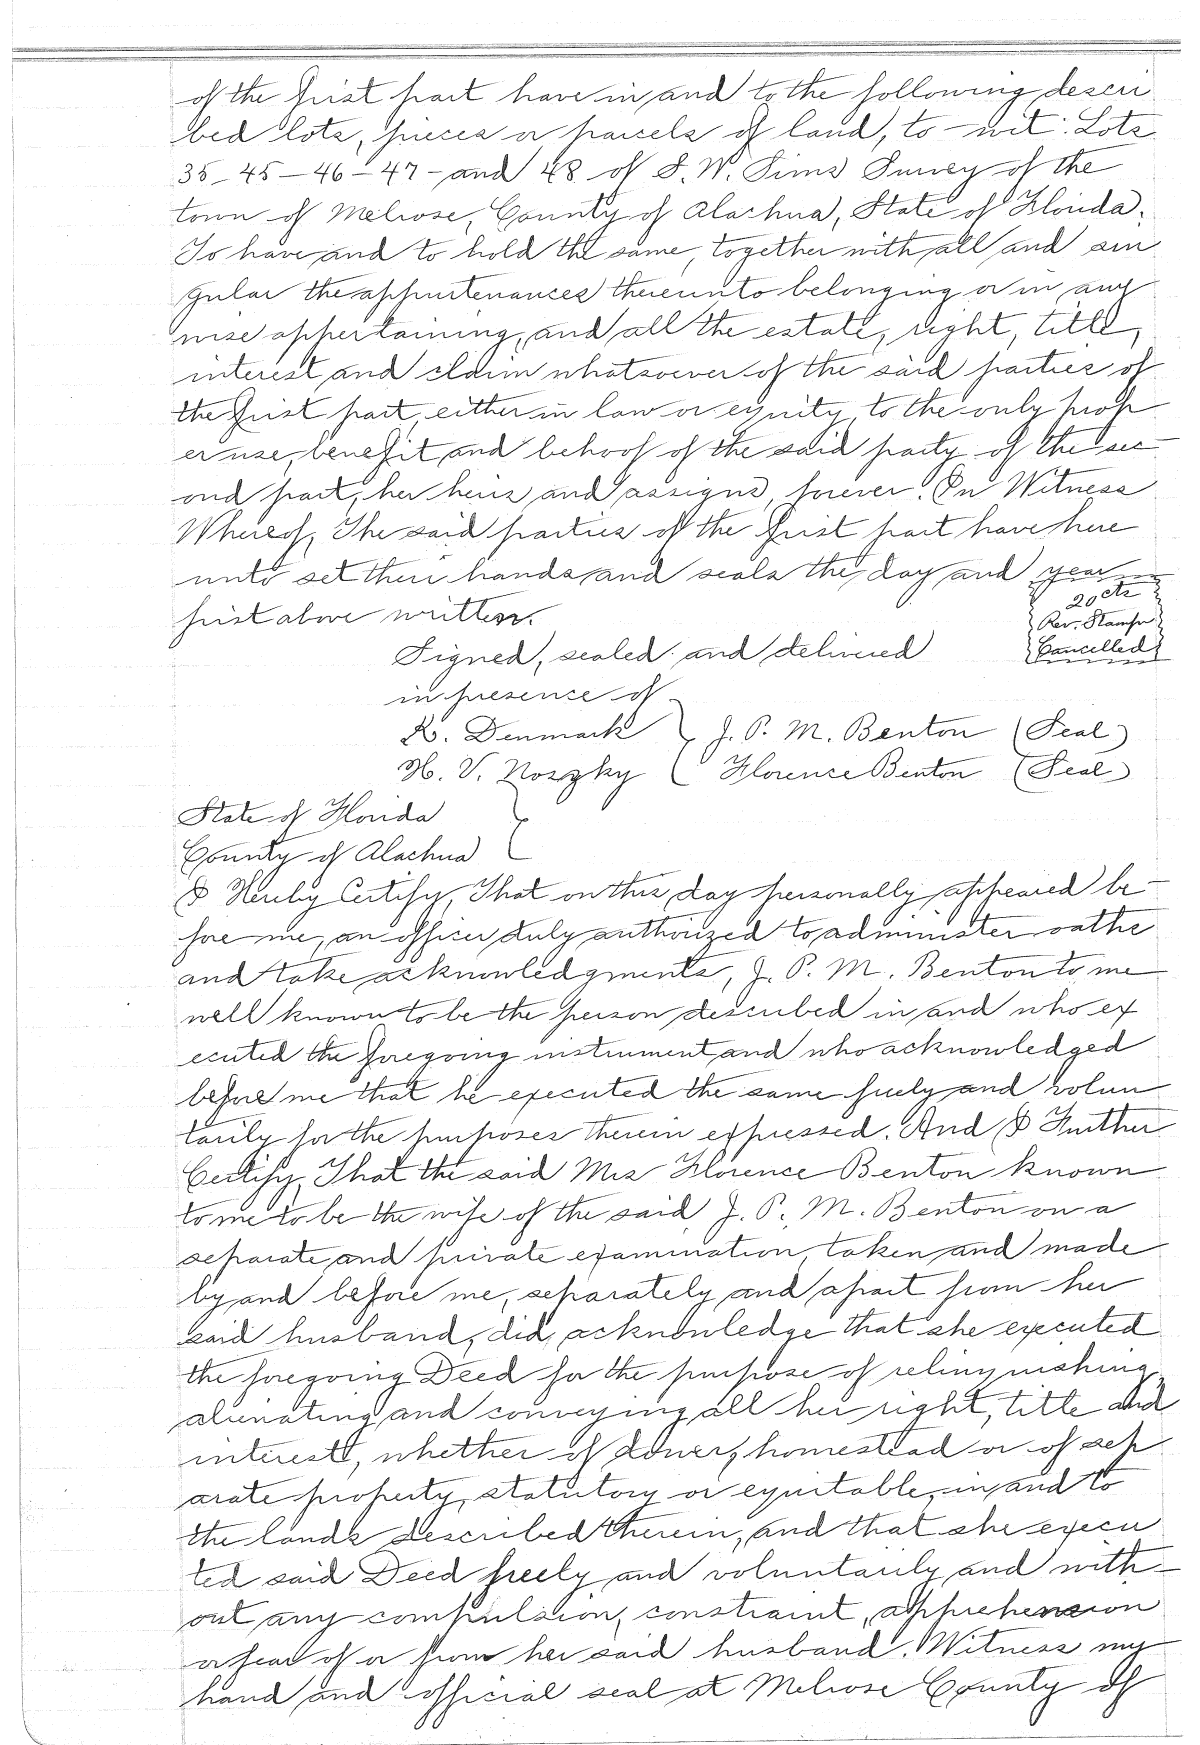 of the first part have in and to the following descri
bed lots, pieces or parcels of land, to-wit: Lots
35-45-46-47-and 48 of S. W. Sims Survey of the
town of Melrose, County of Alachua, State of Florida.
To have and to hold the same, together with all and sin
gular the appurtenances thereunto belonging or in any
wise appertaining, and all the estate, right, title,
interest and claim whatsoever of the said parties of
the first part, either in law or equity, to the only prop
er use, benefit and behoof of the said party of the sec-
ond part, her heirs and assigns, forever. In Witness
Whereof, The said parties of the first part have here
unto set their hands and seals the day and year
first above written.
20 cts
Rev. Stamps
Cancelled
Signed, sealed and delivered
in presence of
R. Denmark } J. P. M. Benton (Seal)
H. V. Noszky ( Florence Benton (Seal)
State of Florida
County of Alachua
I Hereby Certify, That on this day personally appeared be-
fore me, an officer duly authorized to administer oaths
and take acknowledgments, J. P. M. Benton to me
well known to be the person described in and who ex
ecuted the foregoing instrument and who acknowledged
before me that he executed the same freely and volun
tarily for the purposes therein expressed. And I Further
Certify, That the said Mrs Florence Benton known
to me to be the wife of the said J. P. M. Benton on a
separate and private examination, taken and made
by and before me, separately and apart from her
said husband, did acknowledge that she executed
the foregoing Deed for the purpose of relinquishing,
alienating and conveying all her right, title and
interest, whether of dower, homestead or of sep
arate property, statutory or equitable, in and to
the lands described therein, and that she execu
ted said Deed freely and voluntarily and with-
out any compulsion, constraint, apprehension
or fear of or from her said husband. Witness my
hand and official seal at Melrose County of